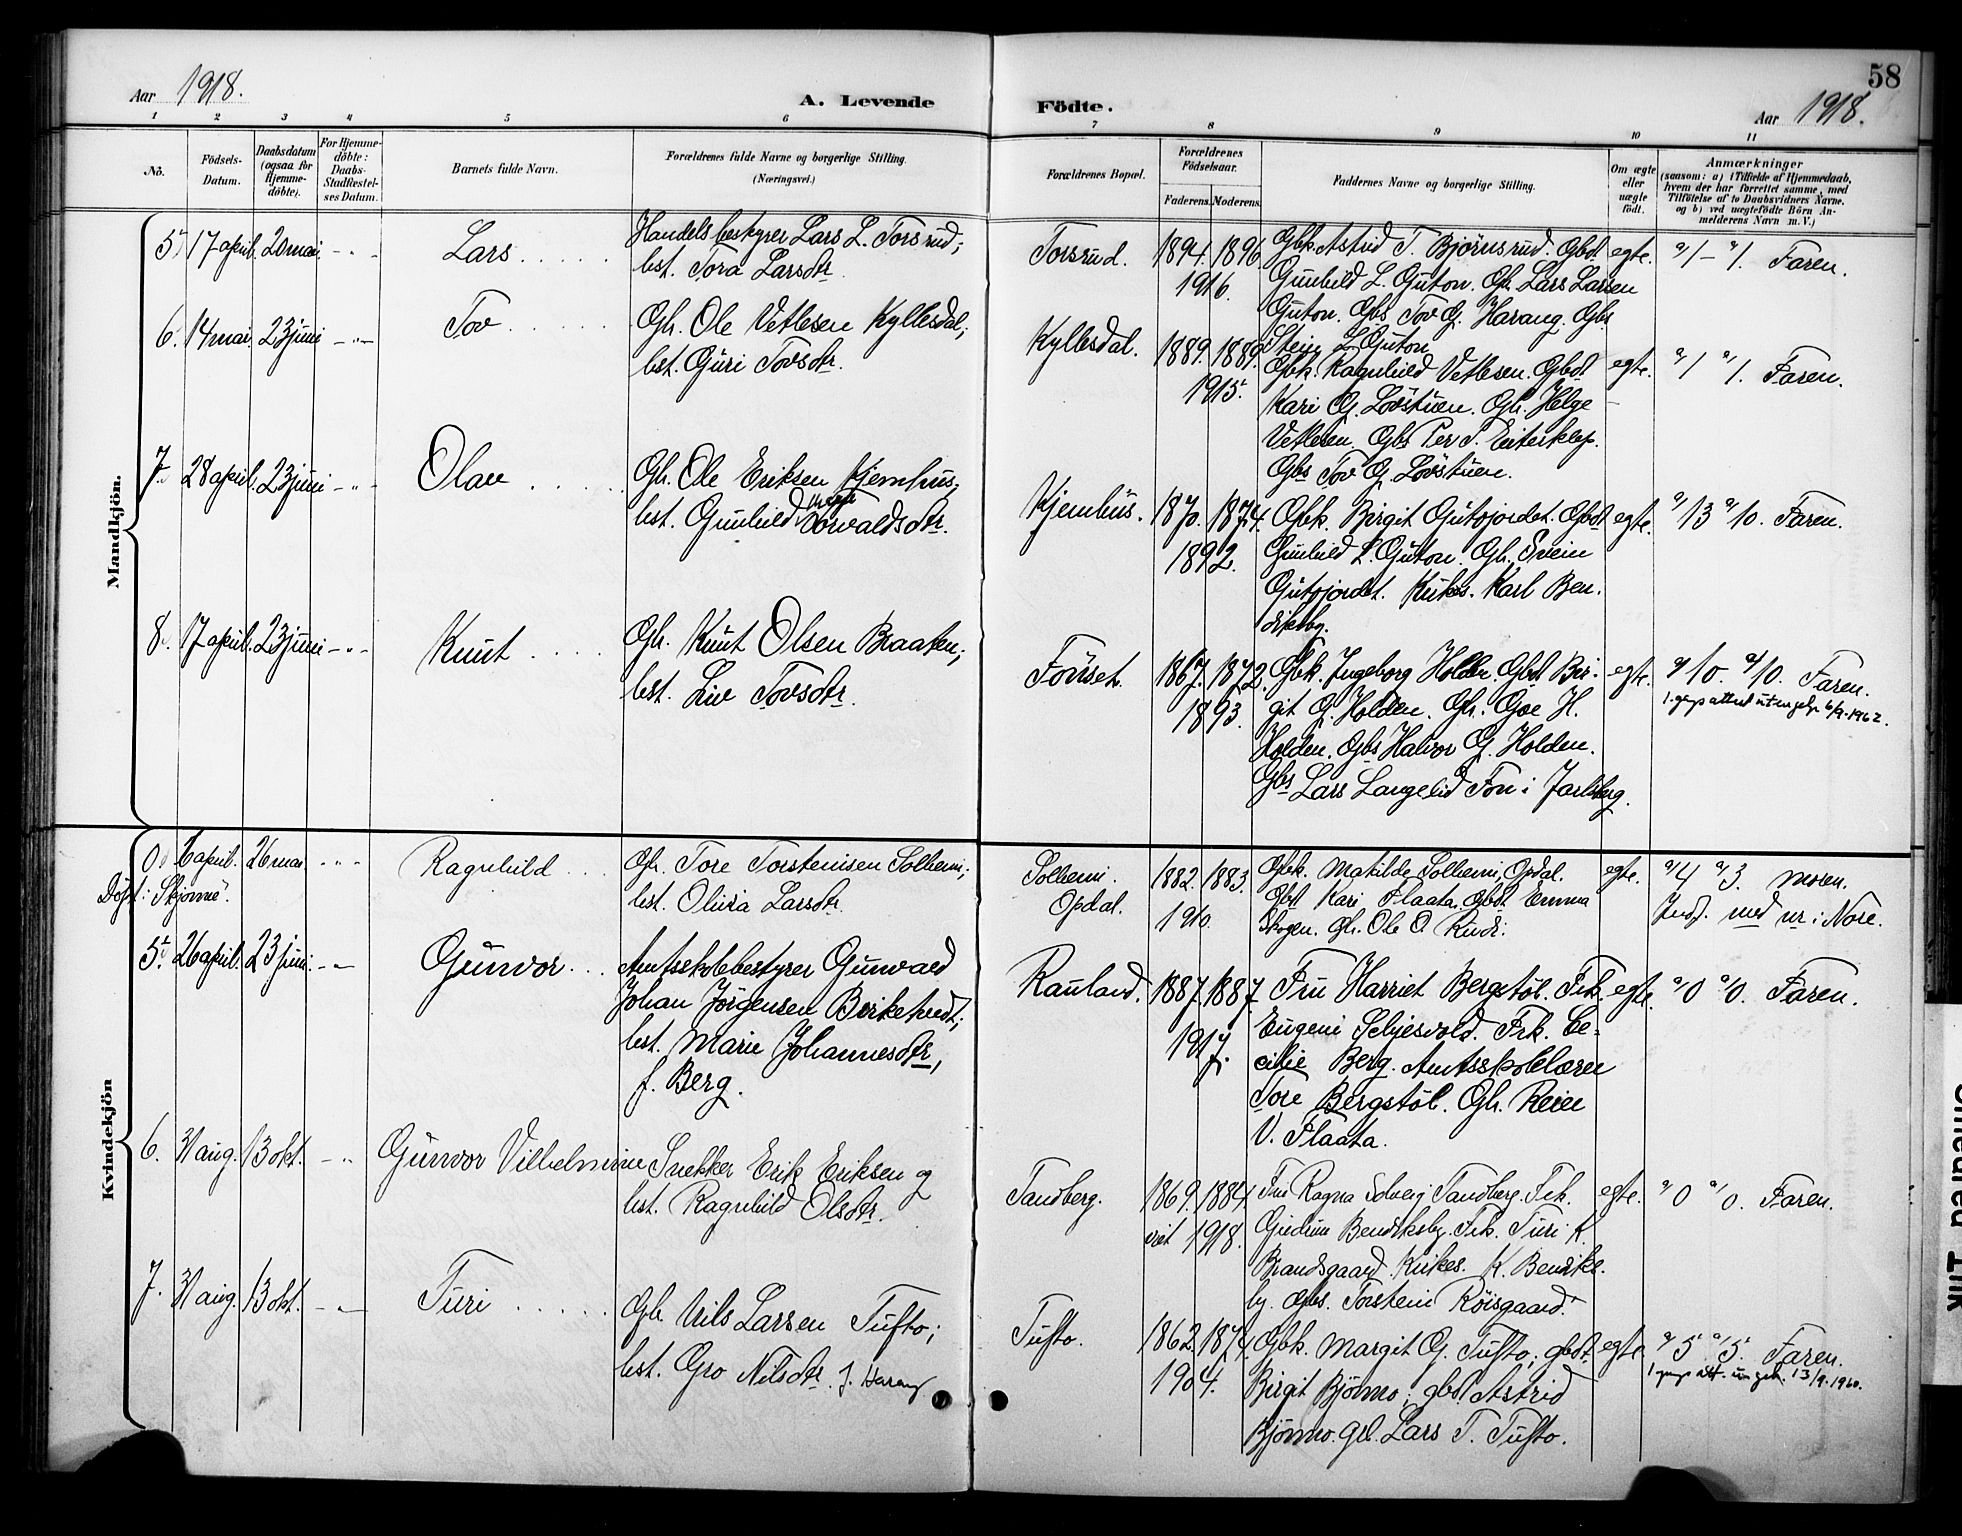 Aar 1918.
A. Levende
Födte.
Aar 1918.
58
1 2 3 4 5 6 7 8 9 10 11
No.
Födsels-
Datum.
Daabsdatum
(ogsaa for
Hjemme-
döbte).
For Hjemme-
döbte:
Daabs-
Stadfæstel-
ses Datum.
Barnets fulde Navn.
Forældrenes fulde Navne og borgerlige Stilling.
(Næringsvei.)
Forældrenes Bopæl.
Forældrenes
Födselsaar.
Faderens. Moderens.
Faddernes Navne og borgerlige Stilling.
Om ægte
eller
uægte
födt.
Anmærkninger
(saasom: a) i Tilfælde af Hjemmedaab,
hvem der har forrettet samme, med
Tilföielse af to Daabsvidners Navne.
og b) ved uægtefödte Börn An-
melderens Navn m. V.)
Mandkjön.
5. 17 april. 20 mai - " - Lars
Handelsbestyrer Lars L. Torsrud;
hst. Tora Larsdtr.
Torsrud. 1894. 1896.
1916.
Gbk. Astrid T. Björnsrud. Gbdt
Gunhild L. Guton. Gh. Lars Larsen
Guton. Gbs Tov G. Harang. Gbs
Stein L. Guton
egte. a/1 - a/1. Faren.
6. 14 mai. 23 juni - " - Tov
Gh. Ole Vetlesen Kyllesdal;
hst. Guri Tovsdtr.
Kyllesdal. 1889. 1889.
1915.
Gbk. Ragnhild Vetlesen. Gbdt
Kari G. Lövstuen. Gh. Helge
Vetlesen. Gbs Per T. Eiterklep.
Gbs Tov G. Lövstuen.
egte. a/1 a/1. Faren.
7. 28 april. 23 juni - " - Olav
Gh. Ole Eriksen Kjemhus;
hst. Gunhild Torvaldsdtr.
Kjemhus. 1870. 1874.
1892.
Gbk. Birgit Gutujordet. Gbdt
Gunhild L. Guton. Gh. Svein
Gutujordet. Kirkes. Karl Ben-
diksby.
egte. a/13 a/0. Faren.
8. 17 april. 23 juni - " - Knut
Gh. Knut Olsen Braaten;
hst. Liv Tovsdtr.
Fönset. 1867. 1872.
1893.
Gbk. Ingeborg Holden. Gbdt Bir-
git G. Holden. Gh. Goe H.
Holden. Gbs Halvor G. Holden.
Gbs Lars Langelid Fon i Jarlsberg.
egte. a/10. a/10. Faren.
1. gangs attest utengelp 6/9-1962.
Kvindekjön
0. 6 april. 26 mai. - " - Ragnhild
Döpt i Skjönne.
Gh. Tore Torsteinsen Solheim;
hst. Olivia Larsdtr.
Solheim.
Opdal.
1882. 1883.
1910.
Gbk. Matilde Solheim, Opdal.
Gbdt Kari Flaata. Gbdt Emma
Skogen. Gh. Ole O. Ruds.
egte. a/4 a/3. Moren.
Indf. med nr. i Nore.
5. 26 april. 23 juni. - " - Gunvor
Amtsskolebestyrer Gunvald
Johan Jörgensen Birketvedt;
hst. Marie Johannesdtr,
f. Berg.
Rauland. 1887. 1887.
1917.
Fru Harriet Bergstöl. Frk.
Eugeni Seljesvold. Frk. Ce-
cilie Berg. Amtsskolelærer
Tore Bergstöl. Gh. Reier
V. Flaata.
egte. a/0 a/0. Faren.
6. 31 aug. 13 okt. - " - Gunvor Vilhelmine
Snekker Erik Eriksen og
hst. Ragnhild Olsdtr.
Tandberg. 1869. 1884.
viet 1918.
Fru Ragna Solveig Tandberg. Frk.
Gudrun Bendiksby. Frk. Turi K.
Brandsgaard. Kirkes. K. Bendiks-
by. Gbs. Torstein Röisgaard.
egte. a/0 a/0. Faren.
7. 31 aug. 13 okt. - " - Turi
Gb. Nils Larsen Tufto;
hst. Gro Nilsdtr. f. Harang
Tufto. 1862. 1874.
1904.
Gbk. Margit G. Tufto; gbdt.
Birgit Björnno; gbd Astrid
Björnno. gsl. Lars T. Tufto.
egte. a/5 a/5. Faren.
1 gangs att. 13/9. 1960.